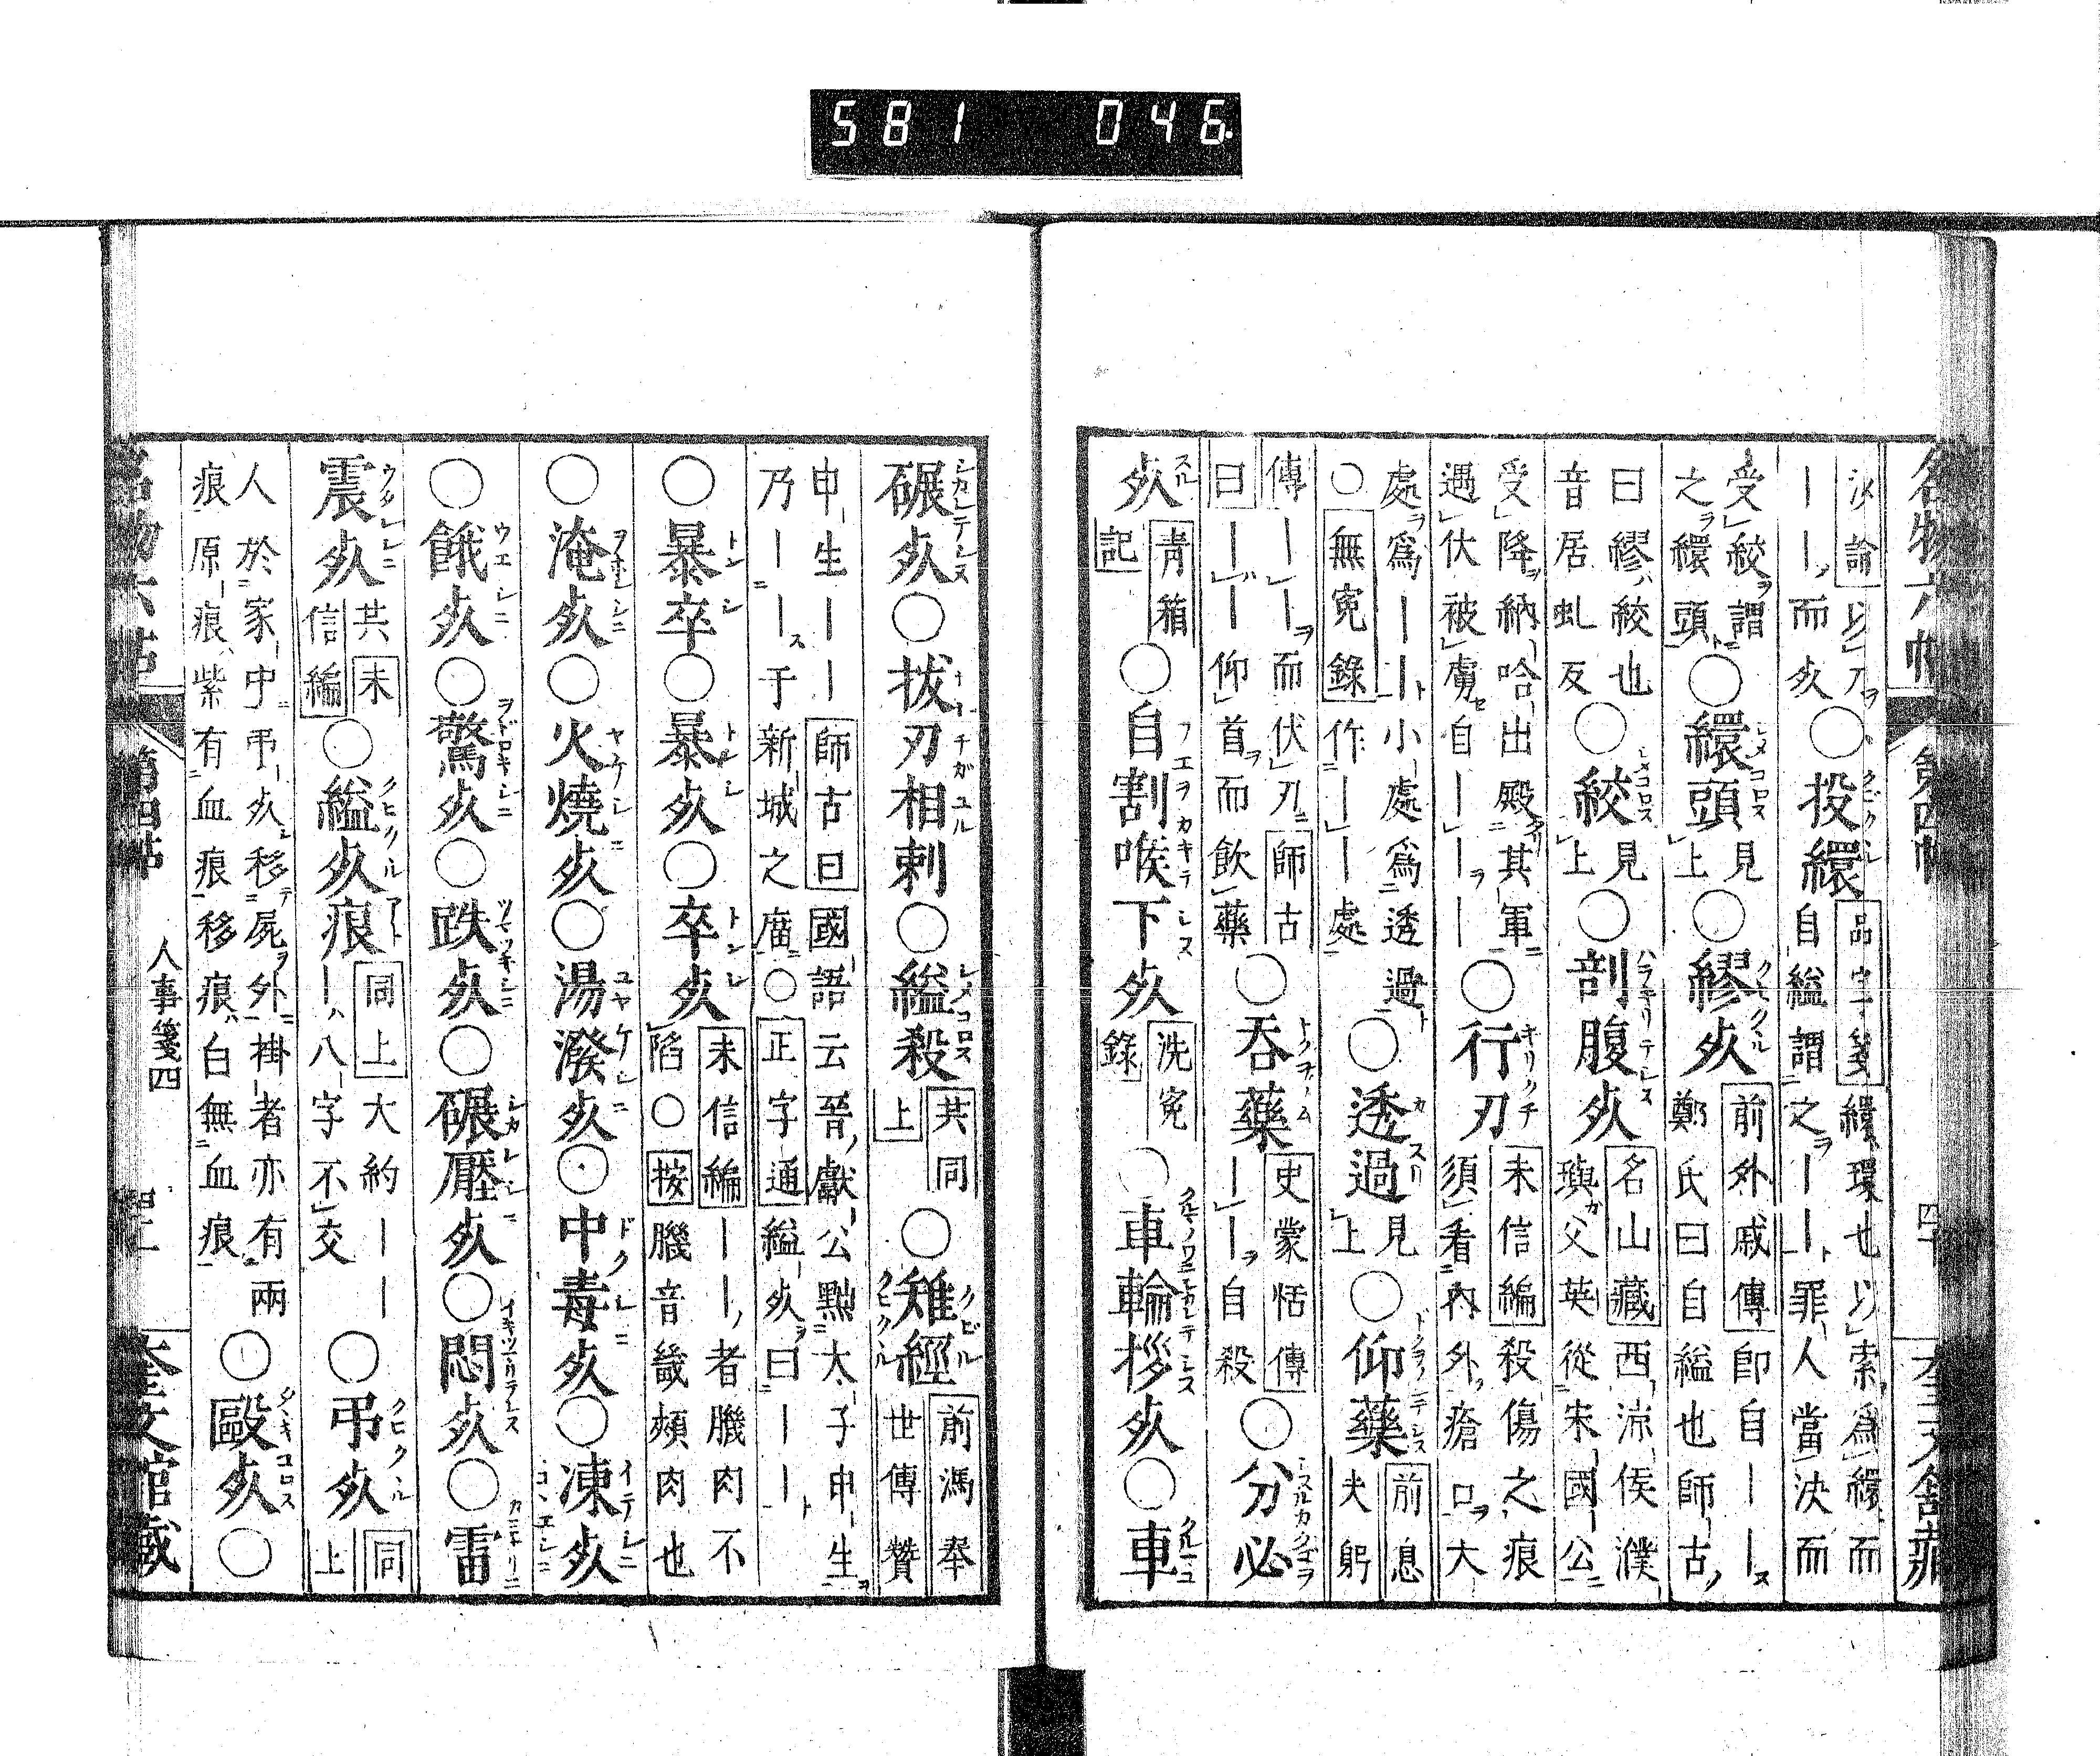 581 046
名物六帖 第四帖 四十 奎文館藏
决論 以刀
ーー而死○投繯 品字箋 繯環也以索爲繯而
自縊謂之ーー罪人當決而
受絞謂
之繯頭○繯頭 見上○繆死 前外戚傳 卽自ーー
鄭氏曰自縊也師古
曰繆絞也
音居虬反○絞 見上○剖腹死 名山藏 西涼侯濮
璵父英從宋國公
受降納哈出殿其軍
遇伏被虜自ーーー○行刃 未信編 殺傷之痕
須看內外瘡口大
處爲ーー小處爲透過
○無寃錄 作ーー處○透過 見上○仰藥 前息夫躬
傳ーーー而伏刃 師古
曰ーーー仰首而飲藥○吞藥 史蒙恬傳
ーーー自殺○分必
死 靑箱記○自割喉下死 洗寃錄○車輪拶死○車
碾死○拔刃相刺○縊殺 共同上○雉經 前馮奉世傳贊
申生ーーー 師古曰 國語云晉獻公黜太子申生
乃ーー于新城之廟○正字通 縊死曰ーー
○暴卒○暴死○卒死 未信編 ーーー者臘肉不
陷○按 臘音畿頰肉也
○淹死○火燒死○湯潑死○中毒死○凍死
○餓死○驚死○跌死○碾壓死○悶死○雷
震死 共未信編○縊死痕 同上 大約ーーー
ー八字不交○弔死 同上
人於家中弔死移屍外掛者亦有兩
痕原痕紫有血痕移痕白無血痕○毆死○
名物六帖 第四帖 人事箋四 奎文館藏